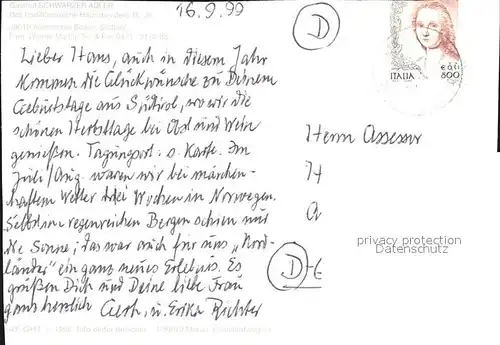 Gasthof SCHWARZER ADLER
16.9.99
D
Lieber Hans, auch in diesem Jahr
kommen die Glückwünsche zu Deinem
Geburtstage aus Südtirol, wo wir die
schönen Herbsttage bei Obst und Wein
genießen. Tagungsort s. Karte. Im
Juli/Aug. waren wir bei märchen-
haftem Wetter drei Wochen in Norwegen.
Selbst im regenreichen Bergen schien nur
die Sonne; das war auch für uns „Nord-
länder" ein ganz neues Erlebnis. Es
grüßen Dich und Deine liebe Frau
ganz herzlich Gerh. u. Erika Richter
ITALIA
€ 0,41
800
Herrn Assessor
H
A
D
privacy protection
Datenschutz